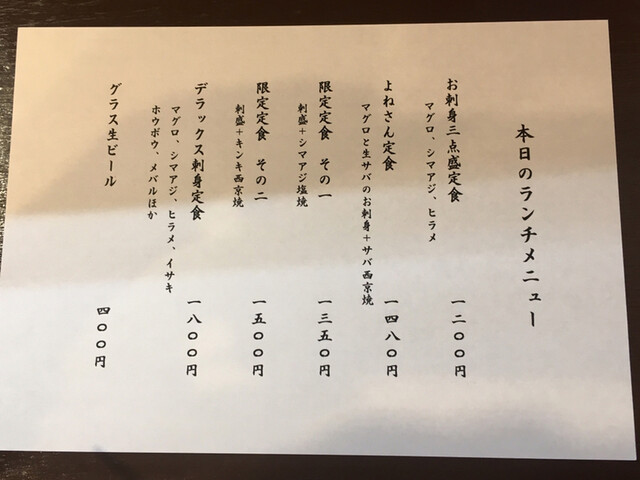 本日のランチメニュー
お刺身三点盛定食 一二〇〇円
マグロ、シマアジ、ヒラメ
よねさん定食 一四八〇円
マグロと生サバのお刺身+サバ西京焼
限定定食 その一 一三五〇円
刺盛+シマアジ塩焼
限定定食 その二 一五〇〇円
刺盛+キンキ西京焼
デラックス刺身定食 一八〇〇円
マグロ、シマアジ、ヒラメ、イサキ
ホウボウ、メバルほか
グラス生ビール 四〇〇円